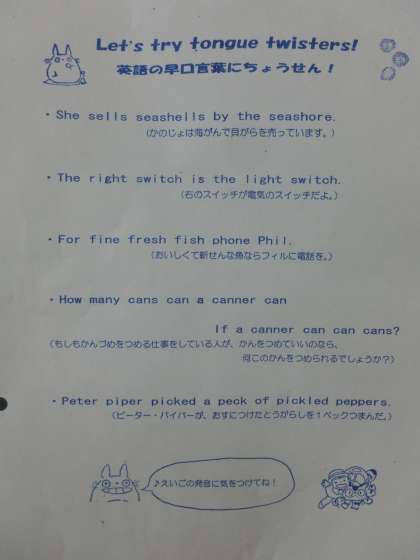 Let's try tongue twisters!
英語の早口言葉にちょうせん！
・She sells seashells by the seashore.
（かのじょは海がんで貝がらを売っています。）
・The right switch is the light switch.
（右のスイッチが電気のスイッチだよ。）
・For fine fresh fish phone Phil.
（おいしくて新せんな魚ならフィルに電話を。）
・How many cans can a canner can
If a canner can can cans?
（もしもかんづめをつめる仕事をしている人が、かんをつめていいのなら、
何このかんをつめられるでしょうか？）
・Peter piper picked a peck of pickled peppers.
（ピーター・パイパーが、おすにつけたとうがらしを１ペックつまんだ。）
♪えいごの発音に気をつけてね！